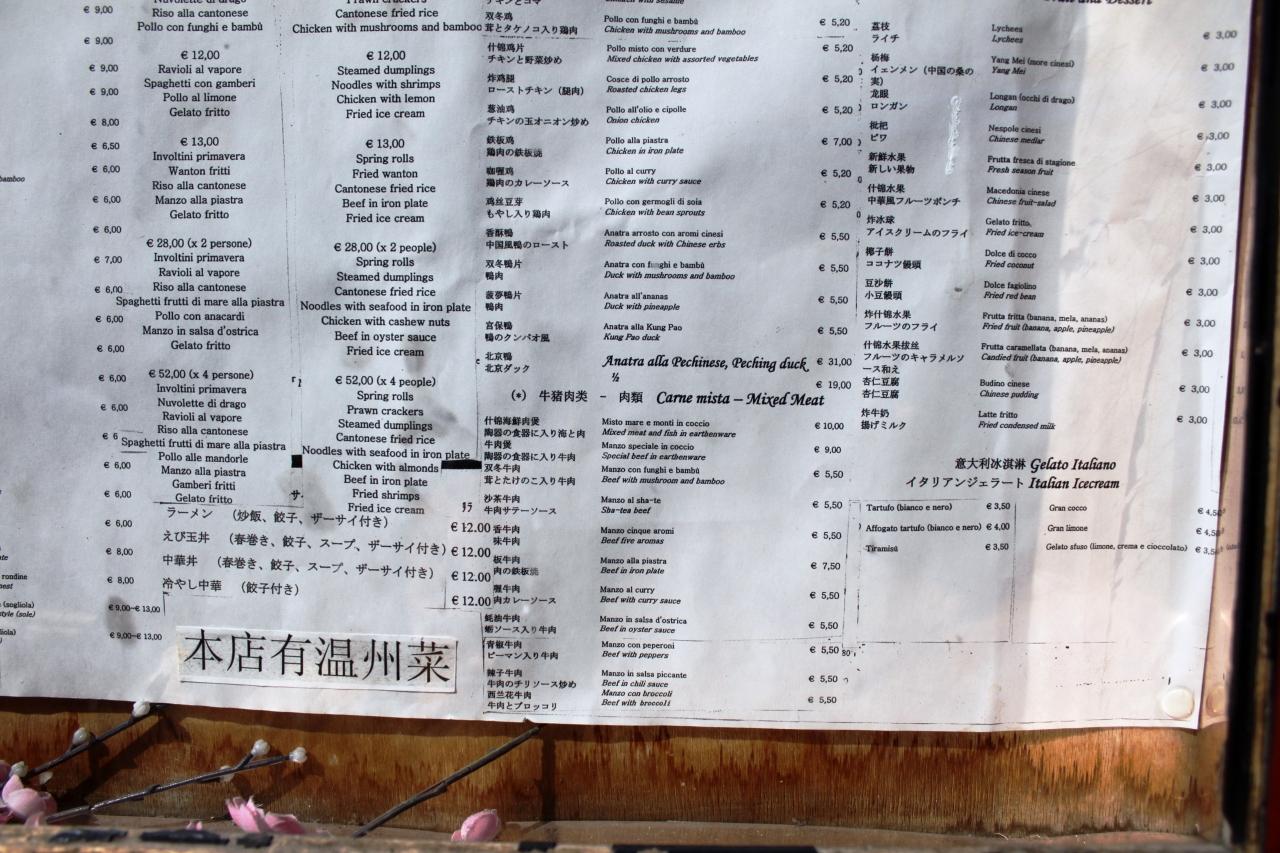 € 9,00
€ 9,00
€ 9,00
€ 9,00
€ 8,00
€ 6,50
€ 6,00
bamboo
€ 6,00
€ 6,00
€ 7,00
€ 6,00
€ 6,00
€ 6,00
€ 6,00
€ 6,00
€ 6
€ 6,00
€ 6,00
€ 6,00
€ 8,00
rondine
€ 8,00
(sogliola)
€ 9,00–€ 13,00
style (sole)
€ 9,00–€ 13,00
Nuvolette di drago
Riso alla cantonese
Pollo con funghi e bambù
€ 12,00
Ravioli al vapore
Spaghetti con gamberi
Pollo al limone
Gelato fritto
€ 13,00
Involtini primavera
Wanton fritti
Riso alla cantonese
Manzo alla piastra
Gelato fritto
€ 28,00 (x 2 persone)
Involtini primavera
Ravioli al vapore
Riso alla cantonese
Spaghetti frutti di mare alla piastra
Pollo con anacardi
Manzo in salsa d'ostrica
Gelato fritto
€ 52,00 (x 4 persone)
Involtini primavera
Nuvolette di drago
Ravioli al vapore
Riso alla cantonese
Spaghetti frutti di mare alla piastra
Pollo alle mandorle
Manzo alla piastra
Gamberi fritti
Gelato fritto
Prawn crackers
Cantonese fried rice
Chicken with mushrooms and bamboo
€ 12,00
Steamed dumplings
Noodles with shrimps
Chicken with lemon
Fried ice cream
€ 13,00
Spring rolls
Fried wanton
Cantonese fried rice
Beef in iron plate
Fried ice cream
€ 28,00 (x 2 people)
Spring rolls
Steamed dumplings
Cantonese fried rice
Noodles with seafood in iron plate
Chicken with cashew nuts
Beef in oyster sauce
Fried ice cream
€ 52,00 (x 4 people)
Spring rolls
Prawn crackers
Steamed dumplings
Cantonese fried rice
Noodles with seafood in iron plate
Chicken with almonds
Beef in iron plate
Fried shrimps
Fried ice cream
ラーメン (炒飯、餃子、ザーサイ付き) € 12.00
えび玉丼 (春巻き、餃子、スープ、ザーサイ付き) € 12.00
中華丼 (春巻き、餃子、スープ、ザーサイ付き) € 12.00
冷やし中華 (餃子付き) € 12.00
本店有温州菜
双冬鸡 Pollo con funghi e bambù € 5,20
茸とタケノコ入り鶏肉 Chicken with mushrooms and bamboo
什锦鸡片 Pollo misto con verdure € 5,20
チキンと野菜炒め Mixed chicken with assorted vegetables
炸鸡腿 Cosce di pollo arrosto € 5,20
ローストチキン(腿肉) Roasted chicken legs
葱油鸡 Pollo all'olio e cipolle € 5,20
チキンの玉オニオン炒め Onion chicken
鉄板鸡 Pollo alla piastra € 7,00
鶏肉の鉄板焼 Chicken in iron plate
咖喱鸡 Pollo al curry € 5,20
鶏肉のカレーソース Chicken with curry sauce
鸡丝豆芽 Pollo con germogli di soia € 5,20
もやし入り鶏肉 Chicken with bean sprouts
香酥鴨 Anatra arrosto con aromi cinesi € 5,50
中国風鴨のロースト Roasted duck with Chinese erbs
双冬鴨片 Anatra con funghi e bambù € 5,50
鴨肉 Duck with mushrooms and bamboo
菠夢鴨片 Anatra all'ananas € 5,50
鴨肉 Duck with pineapple
宫保鴨 Anatra alla Kung Pao € 5,50
鴨のクンパオ風 Kung Pao duck
北京鴨 Anatra alla Pechinese, Peching duck € 31,00
北京ダック ½ € 19,00
(*) 牛猪肉类 – 肉類 Carne mista – Mixed Meat
什锦海鮮肉煲 Misto mare e monti in coccio € 10,00
陶器の食器に入り海と肉 Mixed meat and fish in earthenware
牛肉煲 Manzo speciale in coccio € 9,00
陶器の食器に入り牛肉 Special beef in earthenware
双冬牛肉 Manzo con funghi e bambù € 5,50
茸とたけのこ入り牛肉 Beef with mushroom and bamboo
沙茶牛肉 Manzo al sha-te € 5,50
牛肉サテーソース Sha-tea beef
香牛肉 Manzo cinque aromi € 5,50
味牛肉 Beef five aromas
板牛肉 Manzo alla piastra € 7,50
肉の鉄板焼 Beef in iron plate
喱牛肉 Manzo al curry € 5,50
肉カレーソース Beef with curry sauce
蚝油牛肉 Manzo in salsa d'ostrica € 5,50
蛎ソース入り牛肉 Beef in oyster sauce
青椒牛肉 Manzo con peperoni € 5,50
ピーマン入り牛肉 Beef with peppers
辣子牛肉 Manzo in salsa piccante € 5,50
牛肉のチリソース炒め Beef in chili sauce
西兰花牛肉 Manzo con broccoli € 5,50
牛肉とブロッコリ Beef with broccoli
荔枝 Lychees € 3,00
ライチ Lychees
杨梅 Yang Mei (more cinesi) € 3,00
イェンメン(中国の桑の実) Yang Mei
龙眼 Longan (occhi di drago) € 3,00
ロンガン Longan
枇杷 Nespole cinesi € 3,00
ビワ Chinese medlar
新鲜水果 Frutta fresca di stagione € 3,00
新しい果物 Fresh season fruit
什锦水果 Macedonia cinese € 3,00
中華風フルーツポンチ Chinese fruit-salad
炸冰球 Gelato fritto € 3,00
アイスクリームのフライ Fried ice-cream
椰子餅 Dolce di cocco € 3,00
ココナツ饅頭 Fried coconut
豆沙餅 Dolce fagiolino € 3,00
小豆饅頭 Fried red bean
炸什锦水果 Frutta fritta (banana, mela, ananas) € 3,00
フルーツのフライ Fried fruit (banana, apple, pineapple)
什锦水果拔丝 Frutta caramellata (banana, mela, ananas) € 3,00
フルーツのキャラメルソース和え Candied fruit (banana, apple, pineapple)
杏仁豆腐 Budino cinese € 3,00
杏仁豆腐 Chinese pudding
炸牛奶 Latte fritto € 3,00
揚げミルク Fried condensed milk
意大利冰淇淋 Gelato Italiano
イタリアンジェラート Italian Icecream
Tartufo (bianco e nero) € 3,50 Gran cocco € 4,50
Affogato tartufo (bianco e nero) € 4,00 Gran limone € 4,50
Tiramisù € 3,50 Gelato sfuso (limone, crema e cioccolato) € 3,5